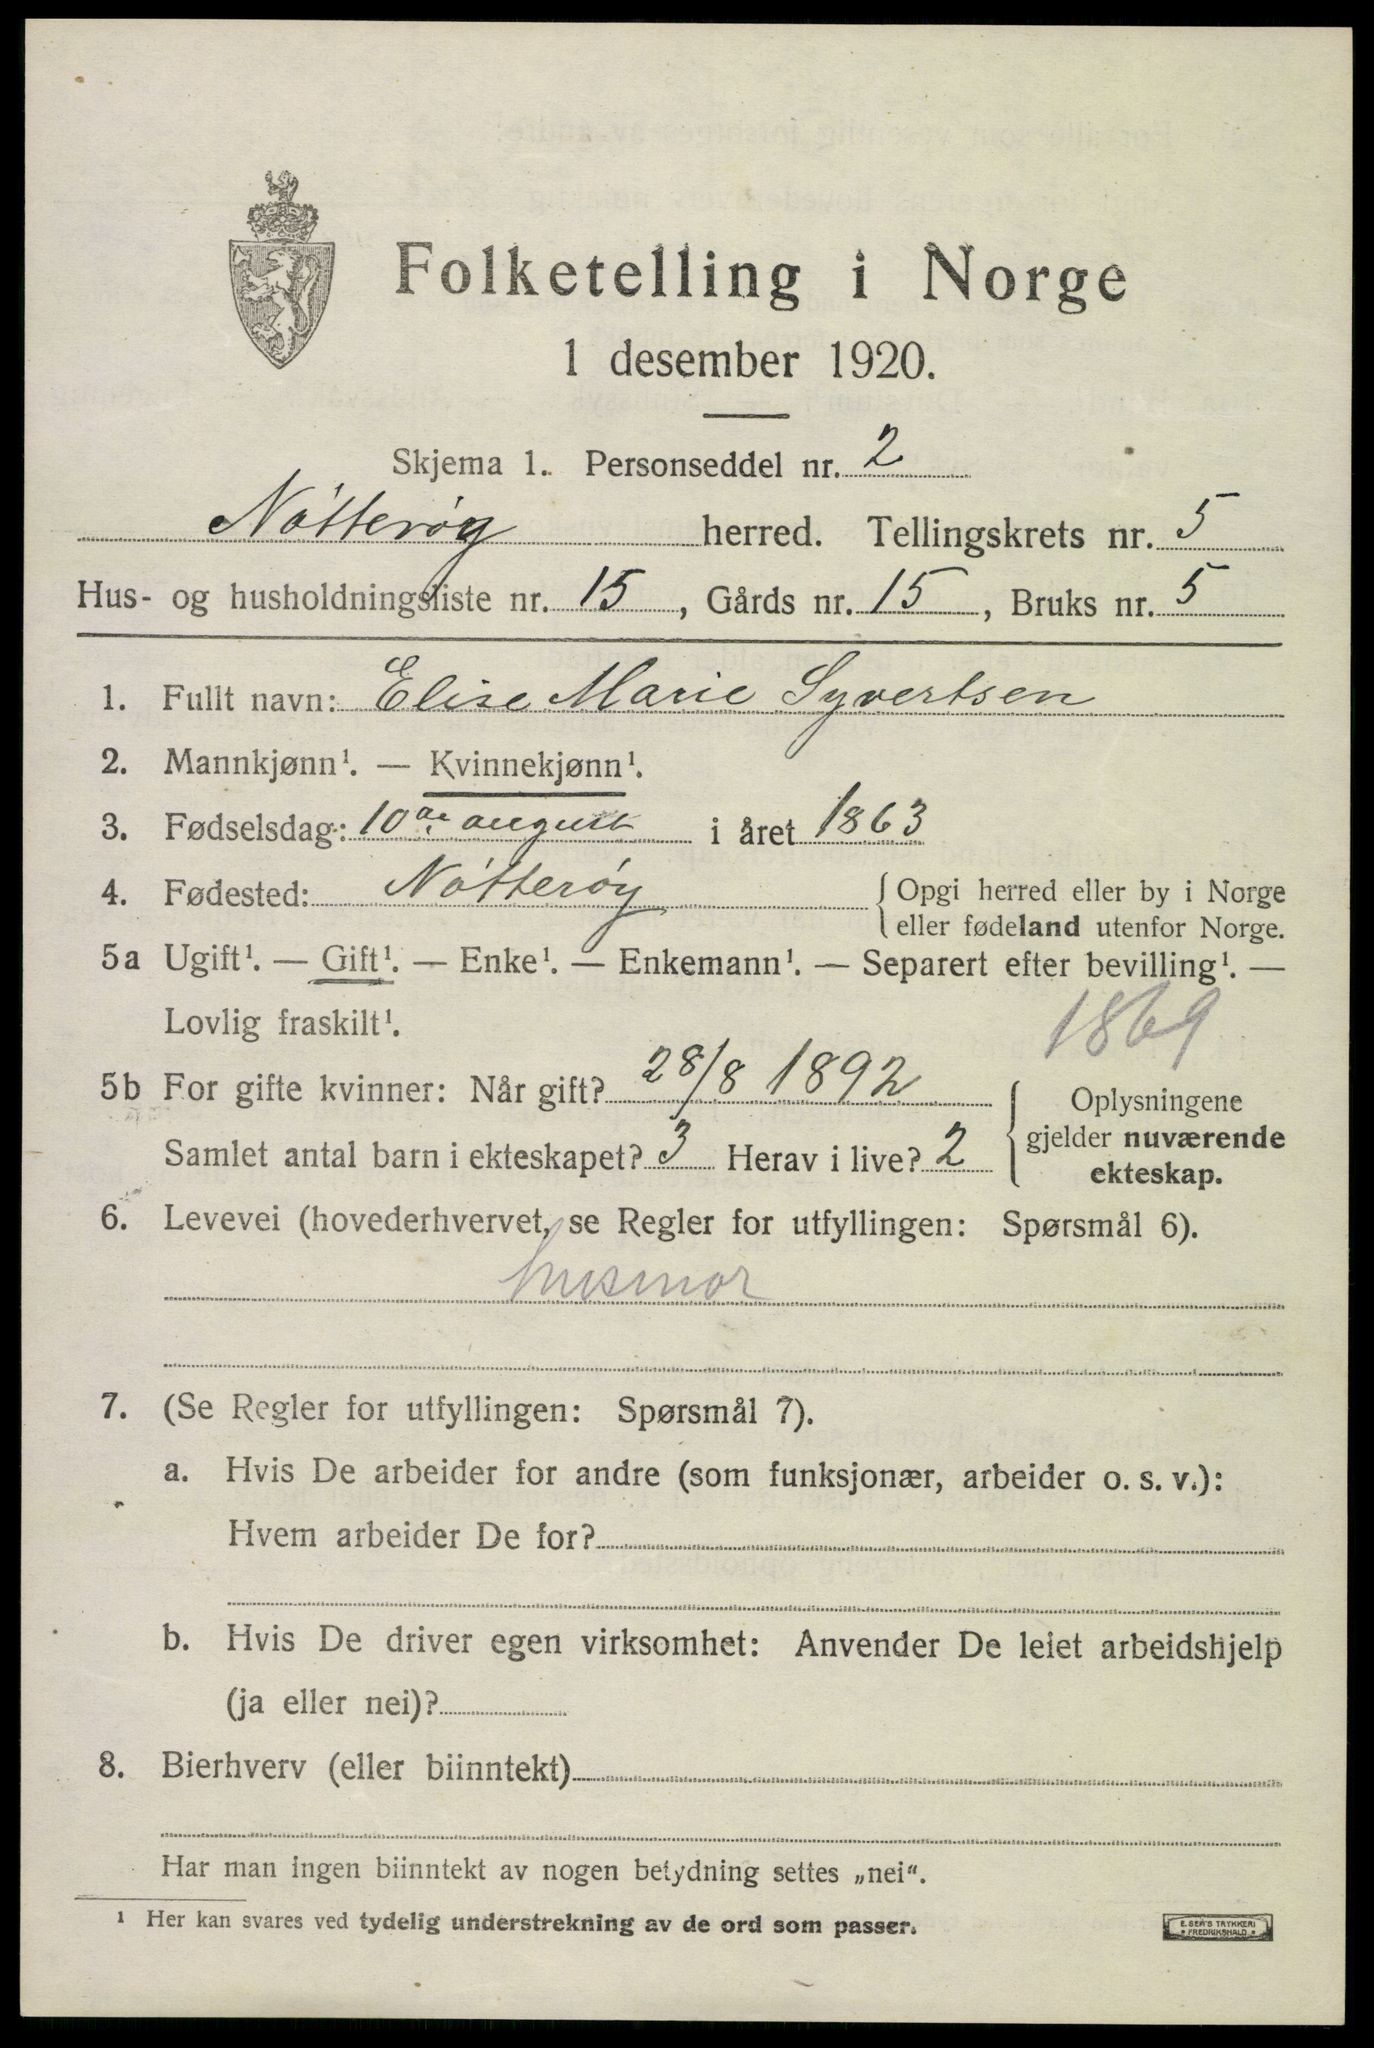 Folketelling i Norge
1 desember 1920.
Skjema 1. Personseddel nr. 2
Nøtterøy herred. Tellingskrets nr. 5
Hus- og husholdningsliste nr. 15, Gårds nr. 15, Bruks nr. 5
1. Fullt navn: Elise Marie Syvertsen
2. Mannkjønn¹. — Kvinnekjønn¹.
3. Fødselsdag: 10de august i året 1863
4. Fødested: Nøtterøy { Opgi herred eller by i Norge
eller fødeland utenfor Norge.
5a Ugift¹. — Gift¹. — Enke¹. — Enkemann¹. — Separert efter bevilling¹. —
Lovlig fraskilt¹. 1869
5b For gifte kvinner: Når gift? 28/8 1892 { Oplysningene
gjelder nuværende
Samlet antal barn i ekteskapet? 3 Herav i live? 2
ekteskap.
6. Levevei (hovederhvervet, se Regler for utfyllingen: Spørsmål 6).
husmor
7. (Se Regler for utfyllingen: Spørsmål 7).
a. Hvis De arbeider for andre (som funksjonær, arbeider o. s. v.):
Hvem arbeider De for?
b. Hvis De driver egen virksomhet: Anvender De leiet arbeidshjelp
(ja eller nei)?
8. Bierhverv (eller biinntekt)
Har man ingen biinntekt av nogen betydning settes „nei“.
¹ Her kan svares ved tydelig understrekning av de ord som passer.
E. SEM'S TRYKKERI
FREDRIKSHALD